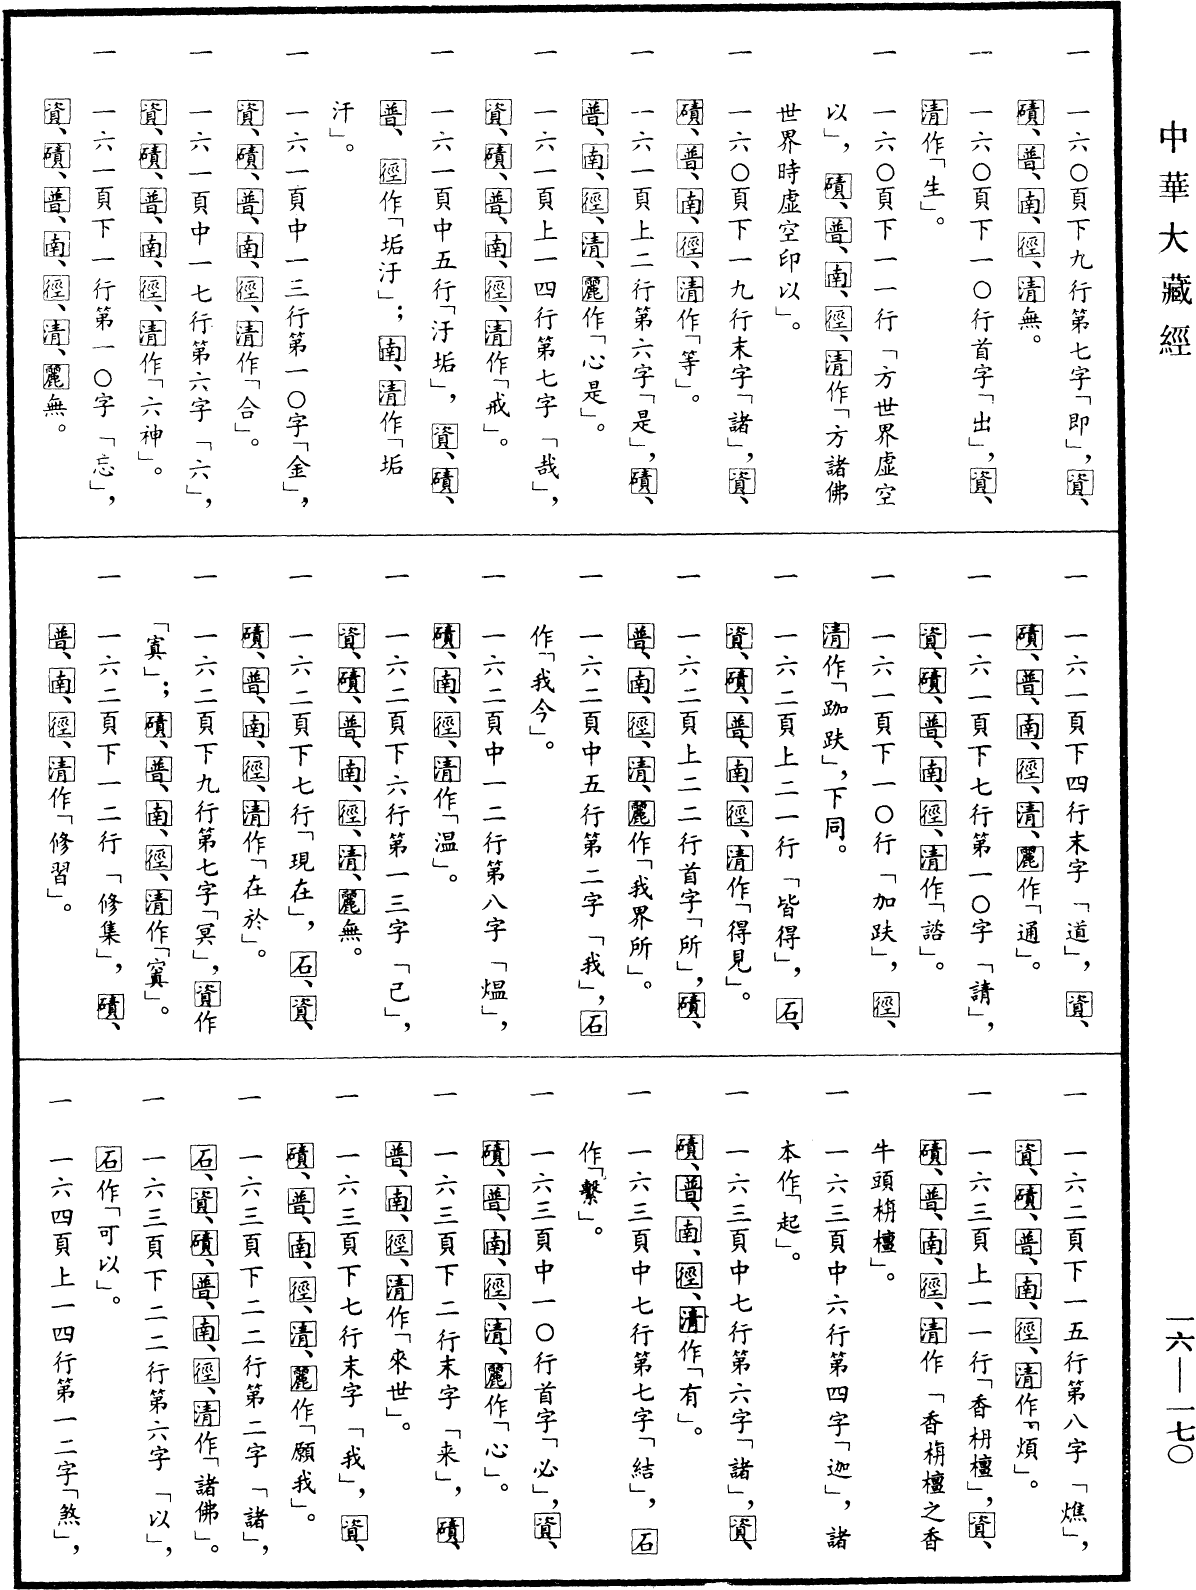 中華大藏經
一　一六〇頁下九行第七字「即」，資、
磧、普、南、徑、清無。
一　一六〇頁下一〇行首字「出」，資、
清作「生」。
一　一六〇頁下一一行「方世界虛空
以」，磧、普、南、徑、清作「方諸佛
世界時虛空印以」。
一　一六〇頁下一九行末字「諸」，資、
磧、普、南、徑、清作「等」。
一　一六一頁上二行第六字「是」，磧、
普、南、徑、清、麗作「心是」。
一　一六一頁上一四行第七字「哉」，
資、磧、普、南、徑、清作「戒」。
一　一六一頁中五行「汙垢」，資、磧、
普、徑作「垢汙」；南、清作「垢
汗」。
一　一六一頁中一三行第一〇字「金」，
資、磧、普、南、徑、清作「合」。
一　一六一頁中一七行第六字「六」，
資、磧、普、南、徑、清作「六神」。
一　一六一頁下一行第一〇字「忘」，
資、磧、普、南、徑、清、麗無。
一　一六一頁下四行末字「道」，資、
磧、普、南、徑、清、麗作「通」。
一　一六一頁下七行第一〇字「請」，
資、磧、普、南、徑、清作「諮」。
一　一六一頁下一〇行「加趺」，徑、
清作「跏趺」，下同。
一　一六二頁上二一行「皆得」，石、
資、磧、普、南、徑、清作「得見」。
一　一六二頁上二二行首字「所」，磧、
普、南、徑、清、麗作「我界所」。
一　一六二頁中五行第二字「我」，石
作「我今」。
一　一六二頁中一二行第八字「熅」，
磧、南、徑、清作「温」。
一　一六二頁下六行第一三字「己」，
資、磧、普、南、徑、清、麗無。
一　一六二頁下七行「現在」，石、資、
磧、普、南、徑、清作「在於」。
一　一六二頁下九行第七字「冥」，資作
「寘」；磧、普、南、徑、清作「寳」。
一　一六二頁下一二行「修集」，磧、
普、南、徑、清作「修習」。
一　一六二頁下一五行第八字「燋」，
資、磧、普、南、徑、清作「煩」。
一　一六三頁上一一行「香栴檀」，資、
磧、普、南、徑、清作「香栴檀之香
牛頭栴檀」。
一　一六三頁中六行第四字「迦」，諸
本作「起」。
一　一六三頁中七行第六字「諸」，資、
磧、普、南、徑、清作「有」。
一　一六三頁中七行第七字「結」，石
作「繫」。
一　一六三頁中一〇行首字「必」，資、
磧、普、南、徑、清、麗作「心」。
一　一六三頁下二行末字「来」，磧、
普、南、徑、清作「來世」。
一　一六三頁下七行末字「我」，資、
磧、普、南、徑、清、麗作「願我」。
一　一六三頁下二二行第二字「諸」，
石、資、磧、普、南、徑、清作「諸佛」。
一　一六三頁下二二行第六字「以」，
石作「可以」。
一　一六四頁上一四行第一二字「煞」，
一六—一七〇